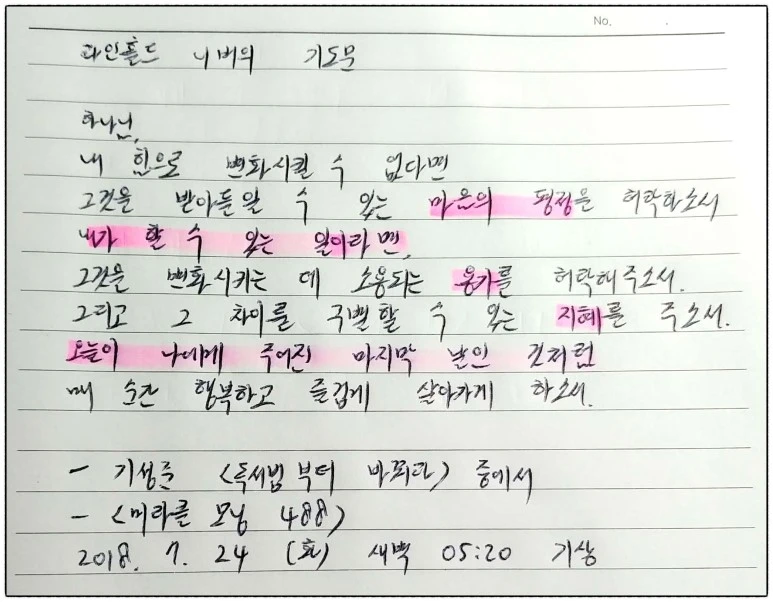 No. .
라인홀드 니버의 기도문
하나님,
내 힘으로 변화시킬 수 없다면
그것을 받아들일 수 있는 마음의 평정을 허락하소서
내가 할 수 있는 일이라면,
그것을 변화시키는 데 소용되는 용기를 허락해주소서.
그리고 그 차이를 구별할 수 있는 지혜를 주소서.
오늘이 나에게 주어진 마지막 날인 것처럼
매 순간 행복하고 즐겁게 살아가게 하소서.
- 기성준 <독서법부터 바꿔라> 중에서
- <미라클 모닝 488>
2018. 7. 24 (화) 새벽 05:20 기상